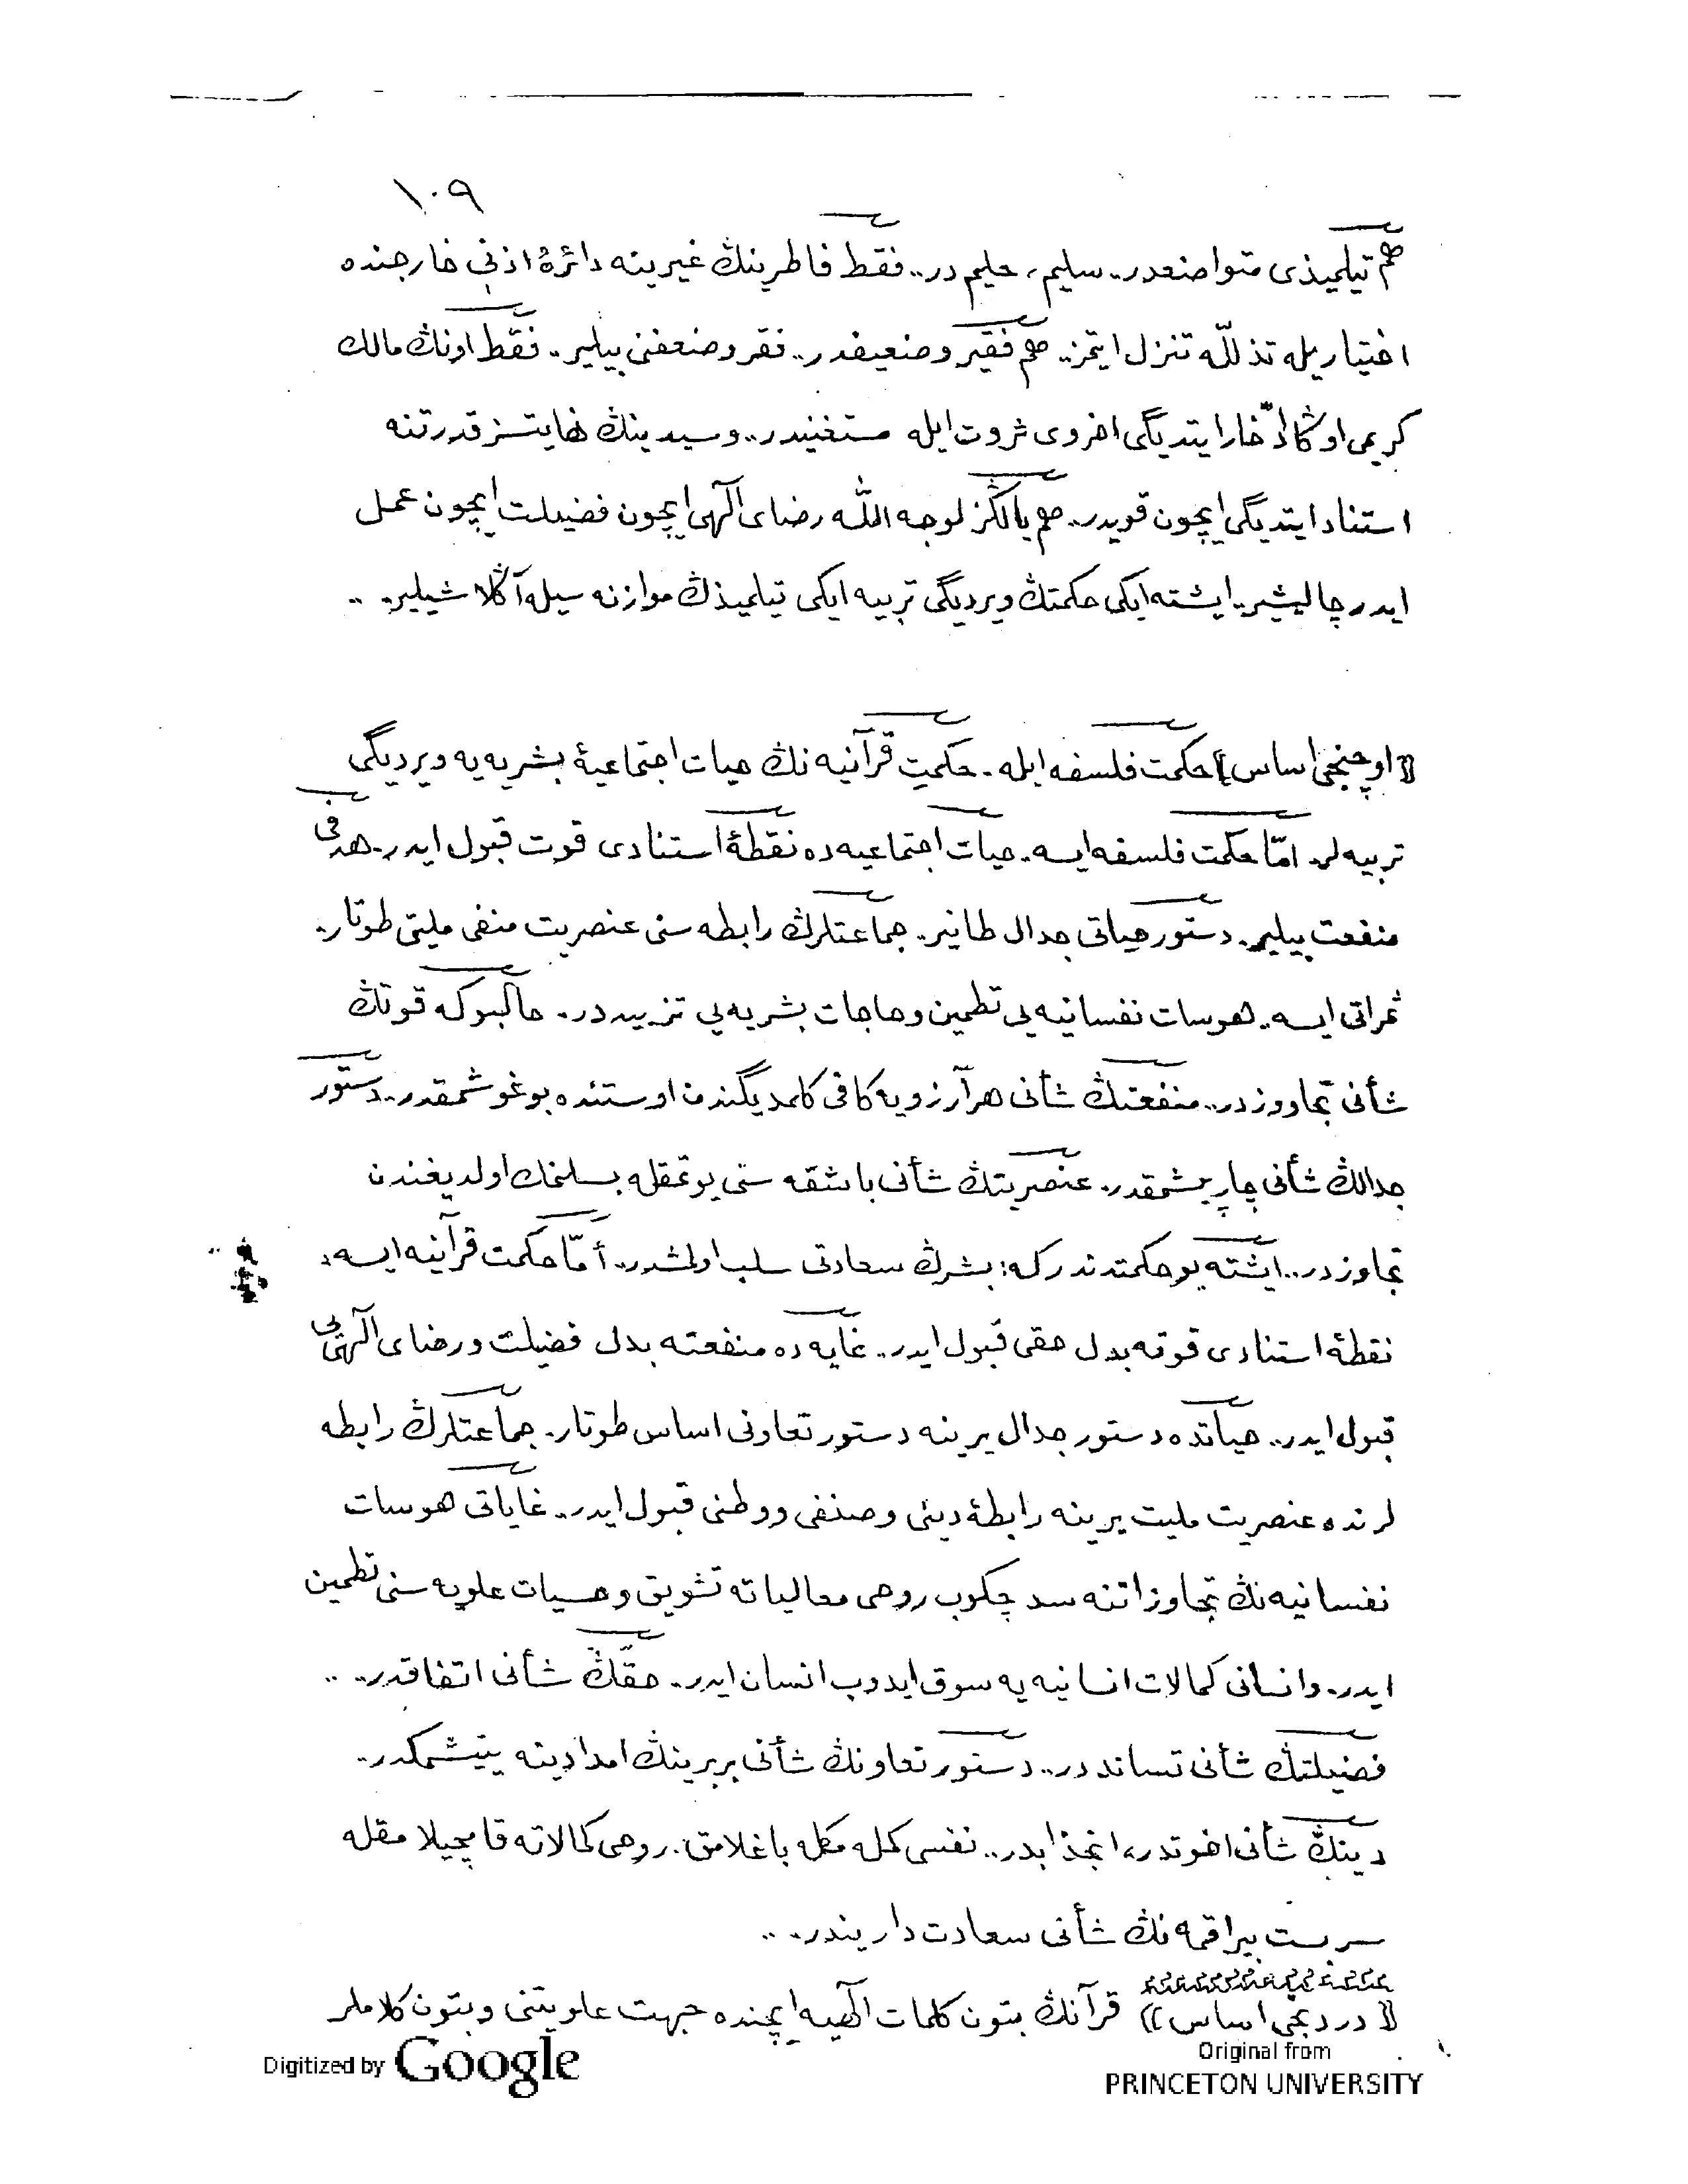 ١٠٩
هم تيلميذى متواضعدر.. سليم، حليم در.. فقط فاطرينڭ غيرينه دائرۀ اذنى خارجنده
اختياريله تذللـه تنزل ايتمز.. هم فقير وضعيفدر.. فقر وضعفنى بيلير.. فقط اونڭ مالك
كريمى اوڭا ادّخار ايتديگى اخروى ثروت ايله مستغنيدر.. وسيدينڭ نهايتسز قدرتنه
استناد ايتديگى ايچون قويدر.. هم يالڭز لوجه الله رضاى الٓهى ايچون فضيلت ايچون عمل
ايدر چاليشير. ايشته ايكى حكمتڭ ويرديگى تربيه ايكى تيلميذڭ موازنه سيله آڭلاشيلير. ..
((اوچنجى اساس)) حكمت فلسفه ايله. حكمتِ قرآنيه نڭ حيات اجتماعيۀ بشريه يه ويرديگى
تربيه لر. امّا حكمت فلسفه ايسه. حيات اجتماعيه ده نقطۀ استنادى قوت قبول ايدر. هدفى
منفعت بيلير. دستور حياتى جدال طانير. جماعتلرڭ رابطه سنى عنصريت منفى ملتى طوتار.
ثمراتى ايسه. هوسات نفسانيه يى تطمين وحاجات بشريه يى تزييد در. حالبوكه قوتڭ
شأنى تجاووز در.. منفعتڭ شأنى هر آرزويه كافى كلمديگندن اوستنده بوغوشمقدر.. دستور
جدالڭ شأنى چارپيشمقدر. عنصريتڭ شأنى باشقه سنى يوتمقله بسلنمك اولديغندن
تجاوز در.. ايشته بو حكمتدندر كه: بشرڭ سعادتى سلب اولمشدر. أمّا حكمت قرآنيه ايسه:
نقطۀ استنادى قوته بدل حقى قبول ايدر.. غايه ده منفعته بدل فضيلت ورضاى الٓهى يى
قبول ايدر.. حياتده دستور جدال يرينه دستور تعاونى اساس طوتار. جماعتلرڭ رابطه
لرنده عنصريت مليت يرينه رابطۀ دينى وصنفى ووطنى قبول ايدر.. غاياتى هوسات
نفسانيه نڭ تجاوزاتنه سد چكوب روحى معالياته تشويق وحسيات علويه سنى تطمين
ايدر. وانسانى كمالات انسانيه يه سوق ايدوب انسان ايدر. حقّڭ شأنى اتفاقدر. ..
فضيلتڭ شأنى تساند در.. دستور تعاونڭ شأنى بربرينڭ امدادينه يتيشمكدر..
دينڭ شأنى اخوتدر، انجذابدر.. نفسى كمله مكله باغلامق. روحى كمالاته قامچيلامقله
سربست بيراقمه نڭ شأنى سعادت داريندر. ..
((دردنجى اساس)) قرآنڭ بتون كلمات الٓهيه ايچنده جهت علويتنى وبتون كلاملر
Digitized by Google
Original from
PRINCETON UNIVERSITY